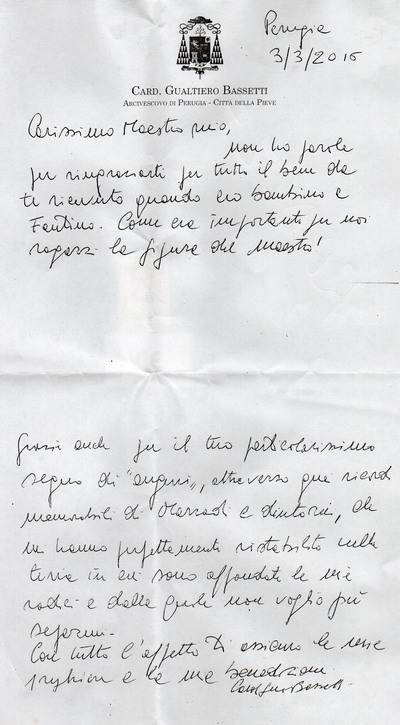 Perugia
3/3/2016
CARD. GUALTIERO BASSETTI
ARCIVESCOVO DI PERUGIA - CITTÀ DELLA PIEVE
Carissimo Maestro mio,
non ho parole
per ringraziarti per tutto il bene da
te ricevuto quando ero bambino a
Fantino. Come era importante per noi
ragazzi la figura del Maestro!
Grazie anche per il tuo particolarissimo
segno di "auguri", attraverso quei ricordi
memorabili di Marradi e dintorni, che
mi hanno perfettamente ristabilito nella
terra in cui sono affondate le mie
radici e dalla quale non voglio più
separarmi.
Con tutto l'affetto Ti assicuro le mie
preghiere e la mia benedizione
Card. Gualtiero Bassetti